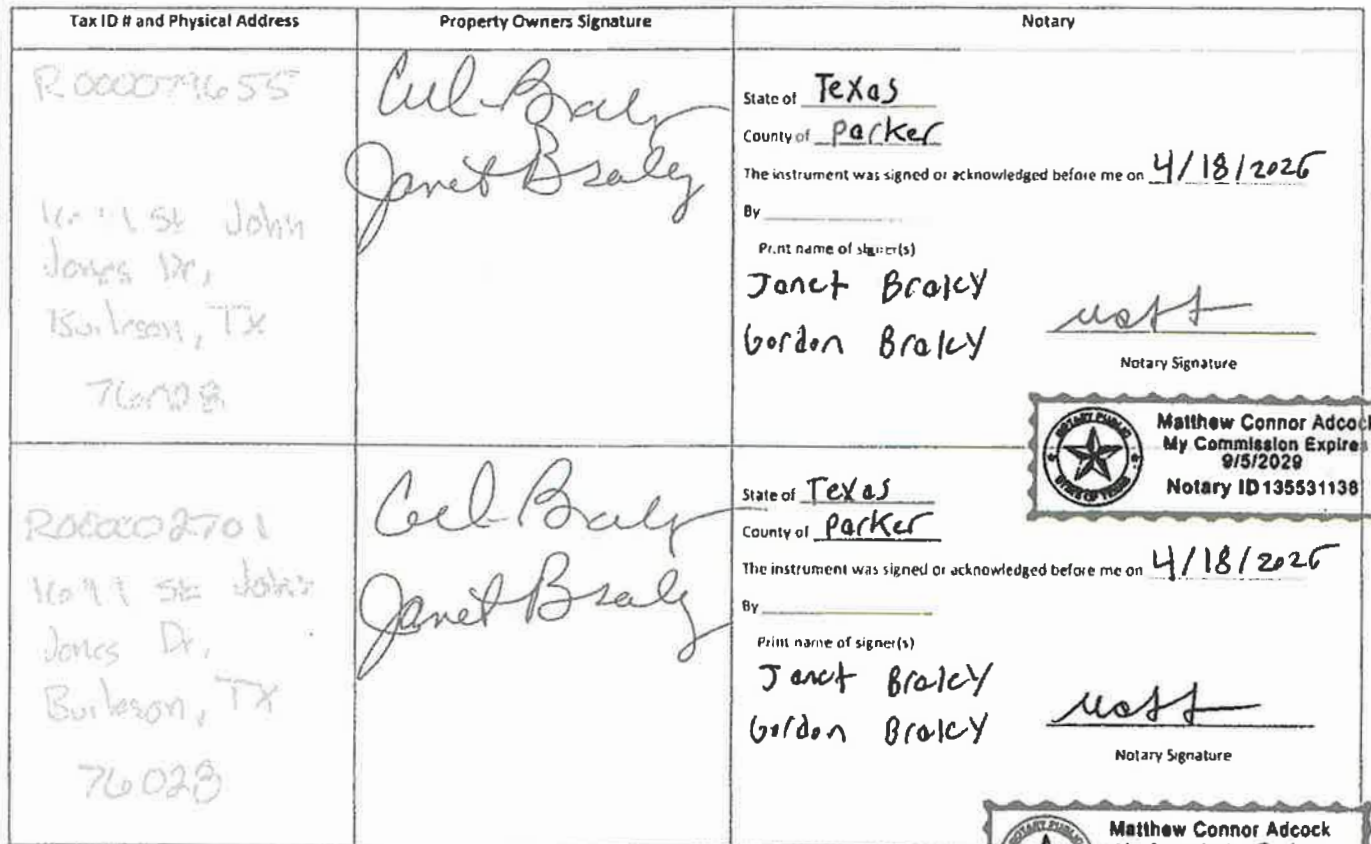 Tax ID # and Physical Address
Property Owners Signature
Notary
St John
Jones Dr,
Burleson, TX
Janet Braley
State of Texas
County of Parker
The instrument was signed or acknowledged before me on 4/18/2026
By
Print name of signer(s)
Janet Braley
Gordon Braley
Notary Signature
Matthew Connor Adcock
My Commission Expires
9/5/2029
Notary ID 135531138
NOTARY PUBLIC
STATE OF TEXAS
R000002701
St John
Jones Dr,
Burleson, TX
76028
Janet Braley
State of Texas
County of Parker
The instrument was signed or acknowledged before me on 4/18/2026
By
Print name of signer(s)
Janet Braley
Gordon Braley
Notary Signature
NOTARY PUBLIC
Matthew Connor Adcock